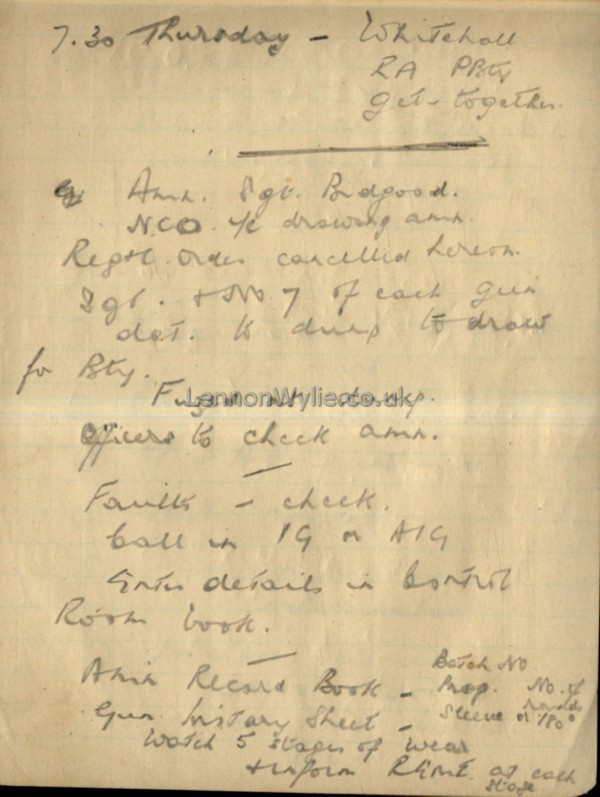 7.30 Thursday - Whitehall
RA PBty
get-together.
Amn. Sgt. Budgood.
N.C.O. i/c drawing amn.
Regtl. order cancelled hereon.
Sgt. + No 7 of each gun
det. to dump to draw
for Bty.
at dump.
LennonWylie.co.uk
Officers to check amn.
Faults - check.
Call in IG or AIG
Enter details in Control
Room book.
Amn Record Book - Batch No.
Prop. No. of
rounds
Gun history Sheet - Sleeve or 180°
Watch 5 stages of wear
+ inform R.Eqmt. at each
stage.